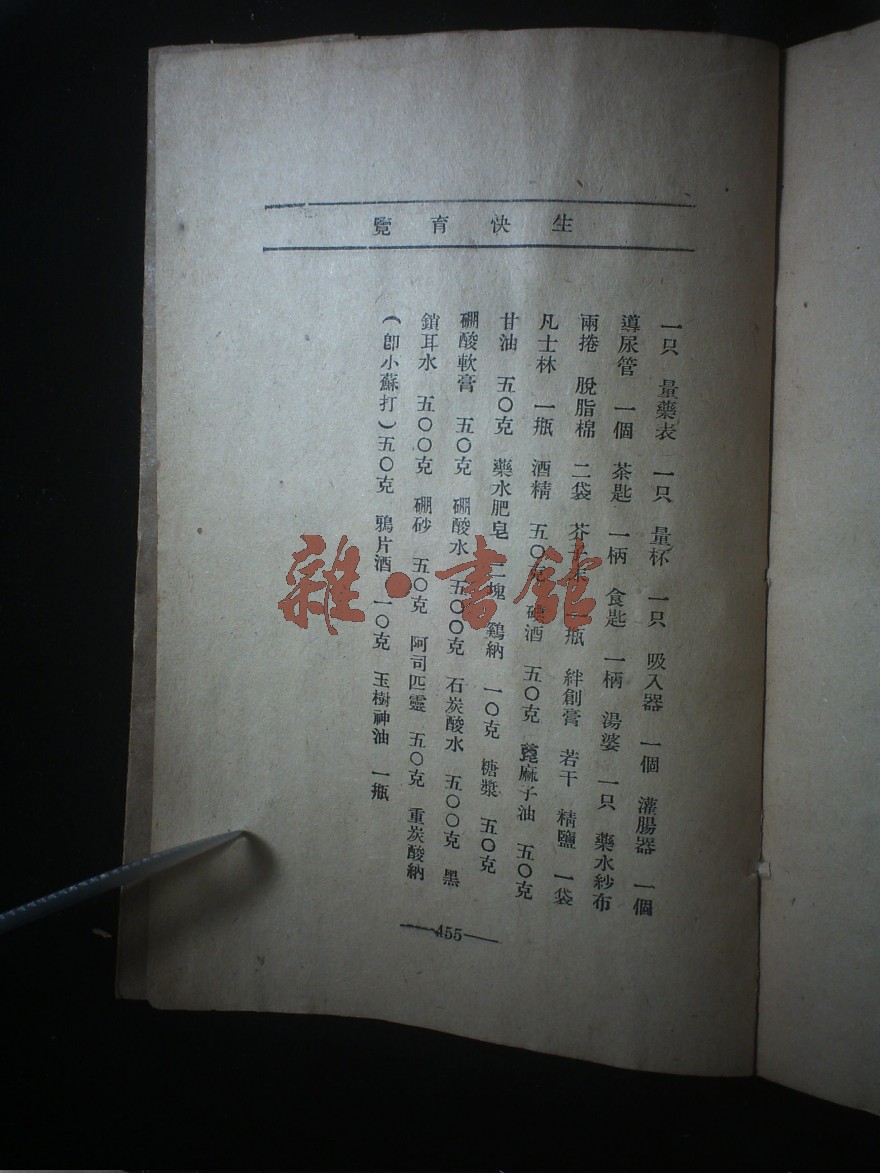 生快育覽
一只　量藥表　一只　量杯　一只　吸入器　一個　灌腸器　一個
導尿管　一個　茶匙　一柄　食匙　一柄　湯婆　一只　藥水紗布
兩捲　脫脂棉　二袋　芥子末　一瓶　絆創膏　若干　精鹽　一袋
凡士林　一瓶　酒精　五〇克　碘酒　五〇克　蓖麻子油　五〇克
甘油　五〇克　藥水肥皂　二塊　鷄納　一〇克　糖漿　五〇克
硼酸軟膏　五〇克　硼酸水　五〇〇克　石炭酸水　五〇〇克　黑
鎖耳水　五〇〇克　硼砂　五〇克　阿司匹靈　五〇克　重炭酸納
（卽小蘇打）五〇克　鴉片酒　一〇克　玉樹神油　一瓶
455
雜·書館